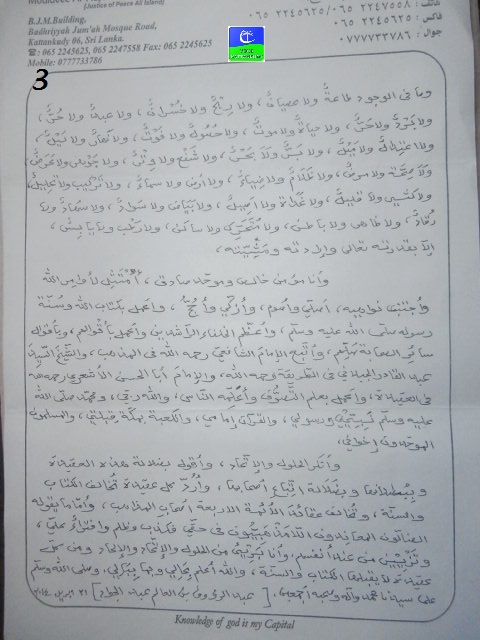 (Justice of Peace All Island)
B.J.M.Building,
Badhriyyah Jum'ah Mosque Road,
Kattankudy 06, Sri Lanka.
☎: 065 2245625, 065 2247558 Fax: 065 2245625
Mobile: 0777733786
٠٦٥ ٢٢٤٥٦٢٥/٠٦٥ ٢٢٤٧٥٥٨
فاكس : ٠٦٥ ٢٢٤٥٦٢٥
جوال : ٠٧٧٧٧٣٣٧٨٦
3
وما في الوجود طاعة ولا عصيان، ولا ربح ولا خسران، ولا عبد ولا حر،
ولا برد ولا حر، ولا حياة ولا موت، ولا حصول ولا فوت، ولا نهار ولا ليل،
ولا اعتدال ولا ميل، ولا بر ولا بحر، ولا شفع ولا وتر، ولا جوهر ولا عرض،
ولا صحة ولا مرض، ولا ظلام ولا ضياء، ولا أرض ولا سماء، ولا تركيب ولا تحليل،
ولا كثير ولا قليل، ولا غداة ولا أصيل، ولا بياض ولا سواد، ولا سهاد ولا
رقاد، ولا ظاهر ولا باطن، ولا متحرك ولا ساكن، ولا رطب ولا يابس،
إلا بقدرته تعالى وإرادته ومشيئته،
وأنا مؤمن خالص وموحد صادق، أمتثل لأوامر الله
وأجتنب نواهيه، أصلي وأصوم، وأزكي وأحج، وأعمل بكتاب الله وسنة
رسوله صلى الله عليه وسلم، وأعظم الخلفاء الراشدين وأعمل بأقوالهم، وبأقوال
سائر الصحابة، وأتبع الإمام الشافعي رحمه الله في المذهب، والشيخ السيد
عبد القادر الجيلاني في الطريقة رحمه الله، والإمام أبا الحسن الأشعري رحمه الله
في العقيدة، وأعمل بعلم التصوف وأعلمه الناس، والله ربي، ومحمد صلى الله
عليه وسلم نبيي ورسولي، والقرآن إمامي، والكعبة بمكة قبلتي، والمسلمون
الموحدون إخواني،
وأنكر الحلول والاتحاد، وأقول بضلالة هذه العقيدة
وببطلانها وبضلالة أتباع أصحابها، وأرد كل عقيدة تخالف الكتاب
والسنة، وتخالف عقائد الأئمة الأربعة أصحاب المذاهب، وأما ما يقوله
الضالون المعاندون في حقي فكذب وظلم وافتراء علي،
من عند أنفسهم، وأنا بريء من الحلول والاتحاد والإلحاد ومن كل
عقيدة لا يقبلها الكتاب والسنة، والله أعلم بحالي، وصلى الله وسلم
على سيدنا محمد وآله وصحبه أجمعين. [عبد الرؤوف بن العالم عبد الجواد]
Knowledge of god is my Capital